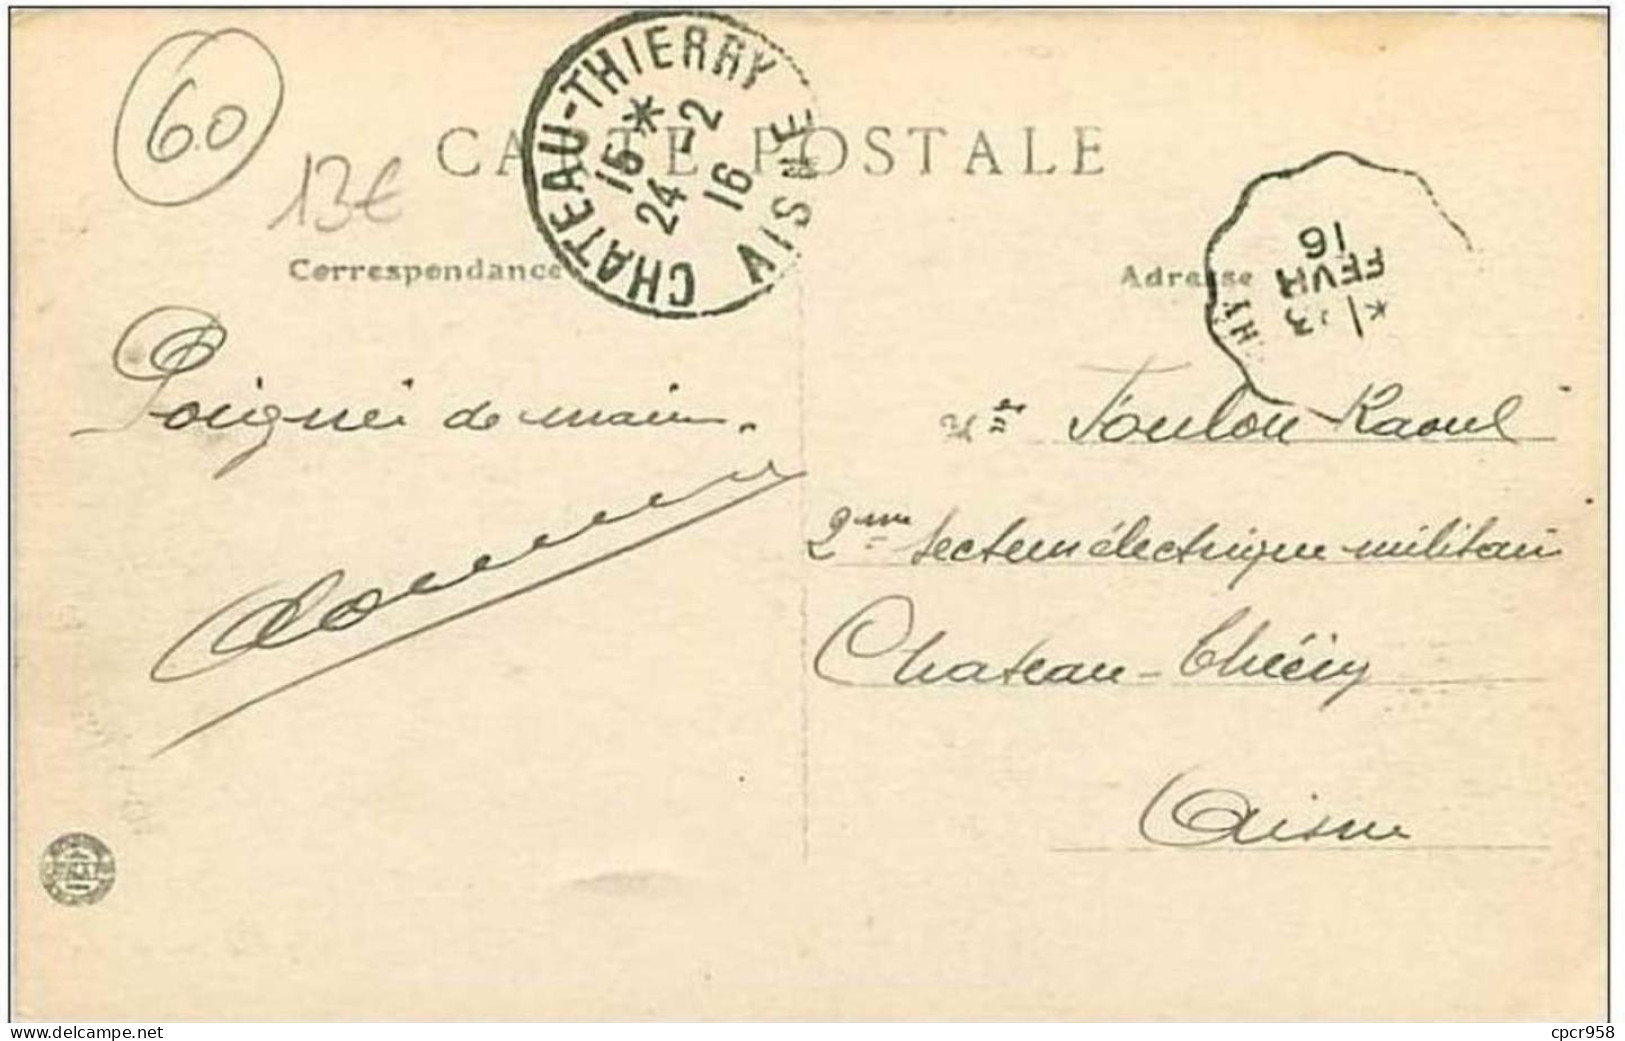 60
13€
CARTE POSTALE
CHATEAU-THIERRY
15 *
24 -2
16
AISNE
* 23
FEVR
16
HY
Correspondance
Adresse
Poignée de main.
Mr Toulon Raoul
2me secteur électrique militaire
Chateau-Thierry
Aisne
delcampe.net
cpcr958